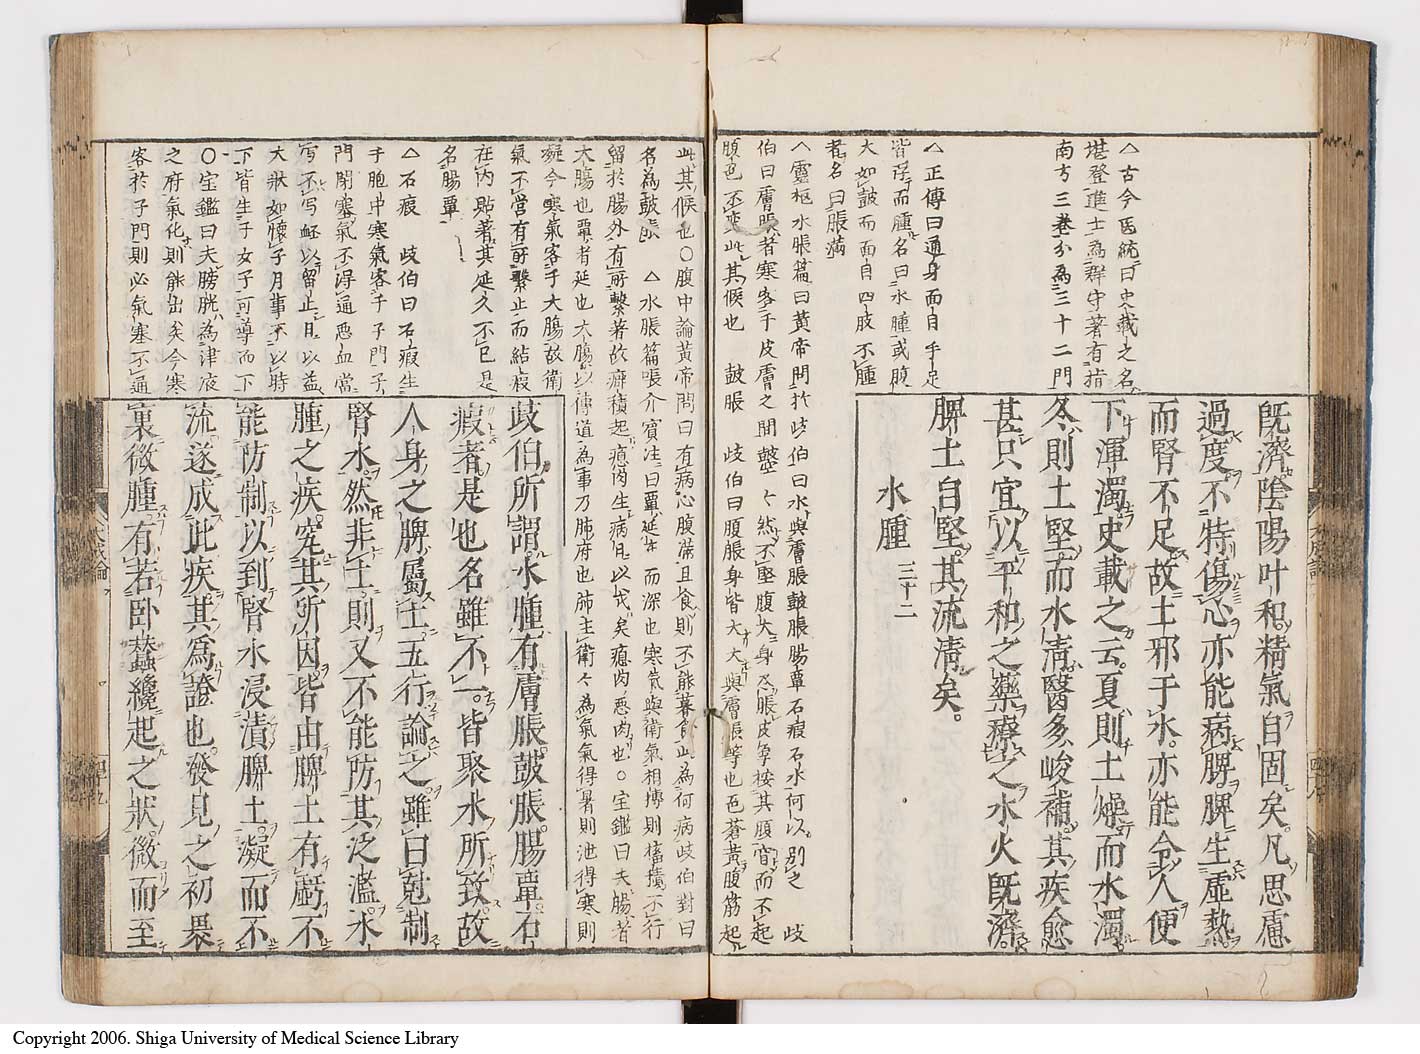 既濟陰陽叶和精氣自固矣凡思慮
過度不特傷心亦能病脾脾生虛熱
而腎不足故土邪于水亦能令人便
下渾濁史載之云夏則土燥而水濁
冬則土堅而水清醫多峻補其疾愈
甚只宜以平和之藥療之水火既濟
脾土自堅其流清矣
水腫 三十二
△古今医統曰史載之名
堪登進士為群守著有指
南方三卷分為三十二門
△正傳曰通身面目手足
皆浮而腫名曰水腫或腹
大如鼓而面目四肢不腫
者名曰脹滿
△靈枢水脹篇曰黃帝問於歧伯曰水與膚脹鼓脹腸覃石瘕石水何以別之 歧
伯曰膚脹者寒客于皮膚之間𪔣々然不堅腹大身尽脹皮厚按其腹窅而不起
腹色不変此其候也 鼓脹 歧伯曰腹脹身皆大大與膚脹等也色蒼黃腹筋起
此其候也〇腹中論黃帝問曰有病心腹滿旦食則不能暮食此為何病歧伯對曰
名為鼓脹 △水脹篇張介賓注曰覃延布而深也寒氣與衛氣相搏則𢴲𢴲不行
留於腸外有所繫著故癖積起瘜肉生病日以成矣瘜肉惡肉也〇宝鑑曰夫腸者
大腸也覃者延也大腸以傳道為事乃肺府也肺主衛々為氣氣得暑則泄得寒則
凝今寒氣客于大腸故衛
氣不営有所繫止而結瘕
在內貼著其延久不已是
名腸覃
△石瘕 歧伯曰石瘕生
于胞中寒氣客于子門子
門閉塞氣不得通惡血當
写不写衃以留止日以益
大狀如懷子月事不以時
下皆生于女子可導而下
〇宝鑑曰夫膀胱為津液
之府氣化則能出矣今寒
客於子門則必氣塞不通
歧伯所謂水腫有膚脹鼓脹腸覃石
瘕者是也名雖不一皆聚水所致故
人身之脾屬土五行論之雖曰尅制
腎水然非土則又不能防其泛濫水
腫之疾究其所因皆由脾土有虧不
能防制以到腎水浸漬脾土凝而不
流遂成此疾其為證也發見之初畏
裏微腫有若臥蠶纔起之狀微而至
大成論
四十九
Copyright 2006. Shiga University of Medical Science Library